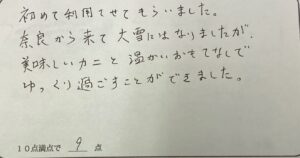 初めて利用させてもらいました。
奈良から来て大雪にはなりましたが、
美味しいカニと温かいおもてなしで
ゆっくり過ごすことができました。
10点満点で 9 点